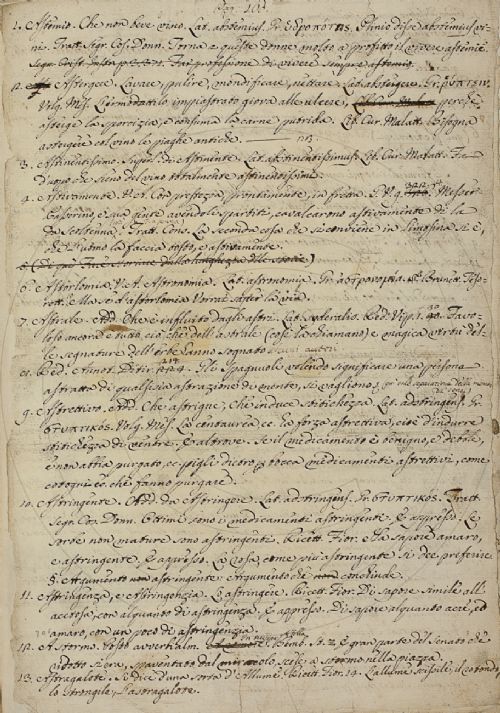 Pag. 101
1. Astemio. Che non beve vino. Lat. abstemius. Gr. ὑδροπότης. Ennio disse abstemius vi-
ni. Tratt. Segr. Cos. Donn. Torna a queste donne molto a profitto il vivere astemie
professione di vivere sempre astemio.
2. Astergere. Lavare, pulire, mondificare, nettare. Lat. abstergere. Gr.
Volg. Mes. L'ermodattilo impiastrato giova alle ulcere, perchè
asterge la sporcizia, e consuma la carne putrida. Lib. Cur. Malatt. Bisogna
astergere col vino le piaghe antiche.
3. Astinentissimo. Superl. di Astinente. Lat. abstinentissimus. Lib. Cur. Malatt. Fa
d'uopo che sieno del vino totalmente astinentissimi.
4. Astivamente. V. A. Con prestezza, prontamente, in fretta. G. V. 9. Messer
Ghiberino, e sua gente avendoli spartiti, cavalcarono astivamente di là
da Scoltenna. Tratt. Cons. La seconda cosa che si conviene in limosina si è,
che l'uomo la faccia tosto, e astivamente.
6. Astorlomia. V. A. Astronomia. Lat. astronomia. Gr. ἀστρονομία. Brunett. Teso-
rett. E lla se d'astorlomia Vorrai saper la via.
7. Astrale. Add. Che è influito dagli astri. Lat. sideralis. Red. Vip. 1. 40. Favo-
loso ancora è tutto ciò che dell'astrale (così la chiamano) e magica virtù del-
le segnature dell'erbe hanno sognato alcuni autori.
8. Red. annot. Ditir. 174. Gli Spagnuoli volendo significare una persona
astratta di qualsisia astrazione di mente, si vagliono
9. Astrettivo. Add. Che astrigne, Che induce stitichezza. Lat. adstringens. Gr.
στυπτικός. Volg. Mes. La centaurea ec. ha forza astrettiva, cioè d'indurre
stitichezza di ventre. E altrove. Se il medicamento è benigno, e debole,
e non abbia purgato, ec. pigli dietro a bocca medicamenti astrettivi, come
cotogni ec. che fanno purgare.
10. Astringente. Add. da Astringere. Lat. adstringens. Gr. στυπτικός. Tratt.
Segr. Cos. Donn. Ottimi sono i medicamenti astringente. E appresso. Le
sorbe non mature sono astringente. Ricett. Fior. Ha sapore amaro,
e astringente. E appresso. La rosa, come più astringente si dee preferire
§. Argumento astringente Argumento che conchiude.
11. Astringenza, e Astringenzia. Lo astringere. Ricett. Fior. Di sapore simile all'
acetosa, con alquanto di astringenza. E appresso. Di sapore alquanto acre, ed
amaro, con un poco di astringenzia.
12. A stormo. Posto avverbialm. Bemb. St. 2. E gran parte del Senato che
ridotto si era, spaventato dal scese a stormo nella piazza.
13. Astragalote. Si dice d'una sorta d'Allume. Ricett. Fior. 14. L'allume scissile, il rotondo,
lo strongile, l'astragalote.